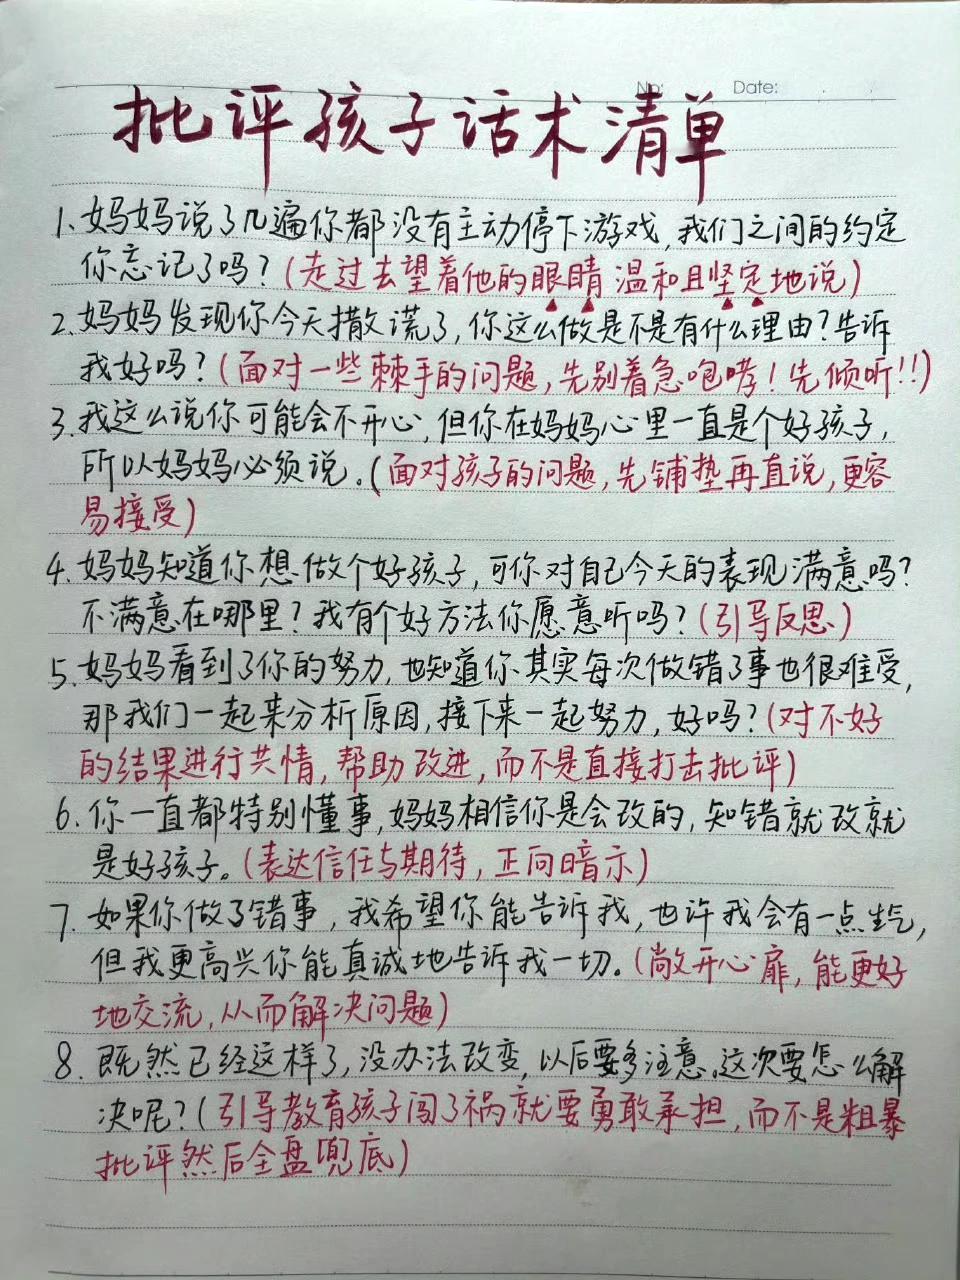 No:
Date:
批评孩子话术清单
1. 妈妈说了几遍你都没有主动停下游戏,我们之间的约定
你忘记了吗?(走过去望着他的眼睛 温和且坚定地说)
2. 妈妈发现你今天撒谎了,你这么做是不是有什么理由?告诉
我好吗?(面对一些棘手的问题,先别着急咆哮!先倾听!!)
3. 我这么说你可能会不开心,但你在妈妈心里一直是个好孩子,
所以妈妈必须说。(面对孩子的问题,先铺垫再直说,更容
易接受)
4. 妈妈知道你想做个好孩子,可你对自己今天的表现满意吗?
不满意在哪里?我有个好方法你愿意听吗?(引导反思)
5. 妈妈看到了你的努力,也知道你其实每次做错了事也很难受,
那我们一起来分析原因,接下来一起努力,好吗?(对不好
的结果进行共情,帮助改进,而不是直接打击批评)
6. 你一直都特别懂事,妈妈相信你是会改的,知错就改就
是好孩子。(表达信任与期待,正向暗示)
7. 如果你做了错事,我希望你能告诉我,也许我会有一点生气,
但我更高兴你能真诚地告诉我一切。(敞开心扉,能更好
地交流,从而解决问题)
8. 既然已经这样了,没办法改变,以后要多注意。这次要怎么解
决呢?(引导教育孩子闯了祸就要勇敢承担,而不是粗暴
批评然后全盘兜底)